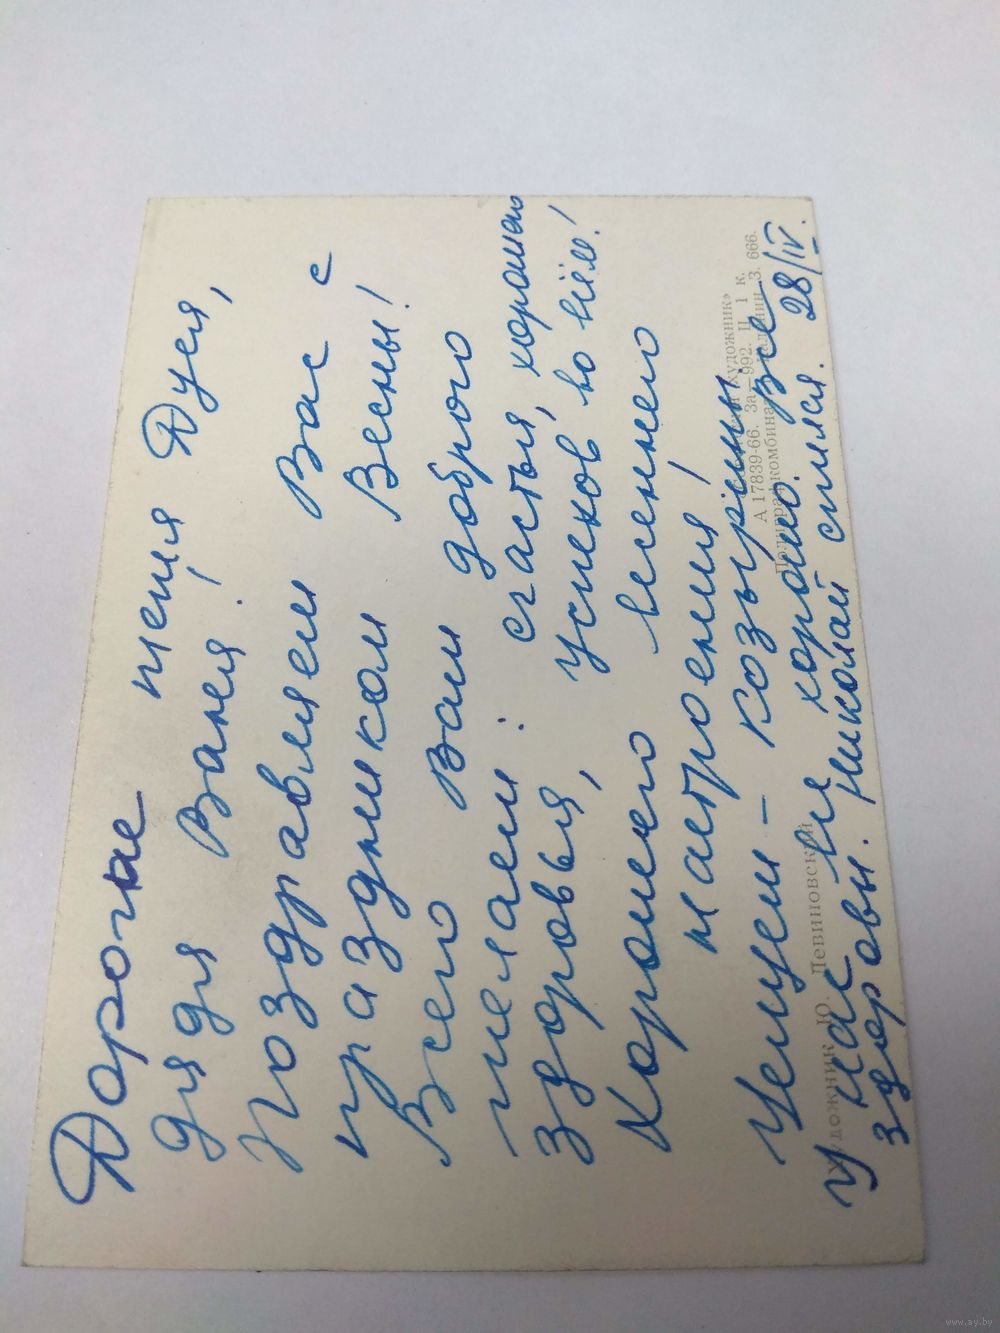 Дорогие тетя Дуся,
дядя Ваня!
Поздравляем Вас с
праздником Весны!
Всего Вам доброго
желаем: счастья, хорошего
здоровья, успехов во всём!
Хорошего весеннего
настроения!
Целуем – Козырины.
У нас все хорошо. Все
здоровы. Николай учился. 28/IV.
Художник Ю. Левиновский
художник»
А 17839-66. За—992. Ц 1 к.
Полиграфкомбинат Калинин З. 666.
www.ay.by